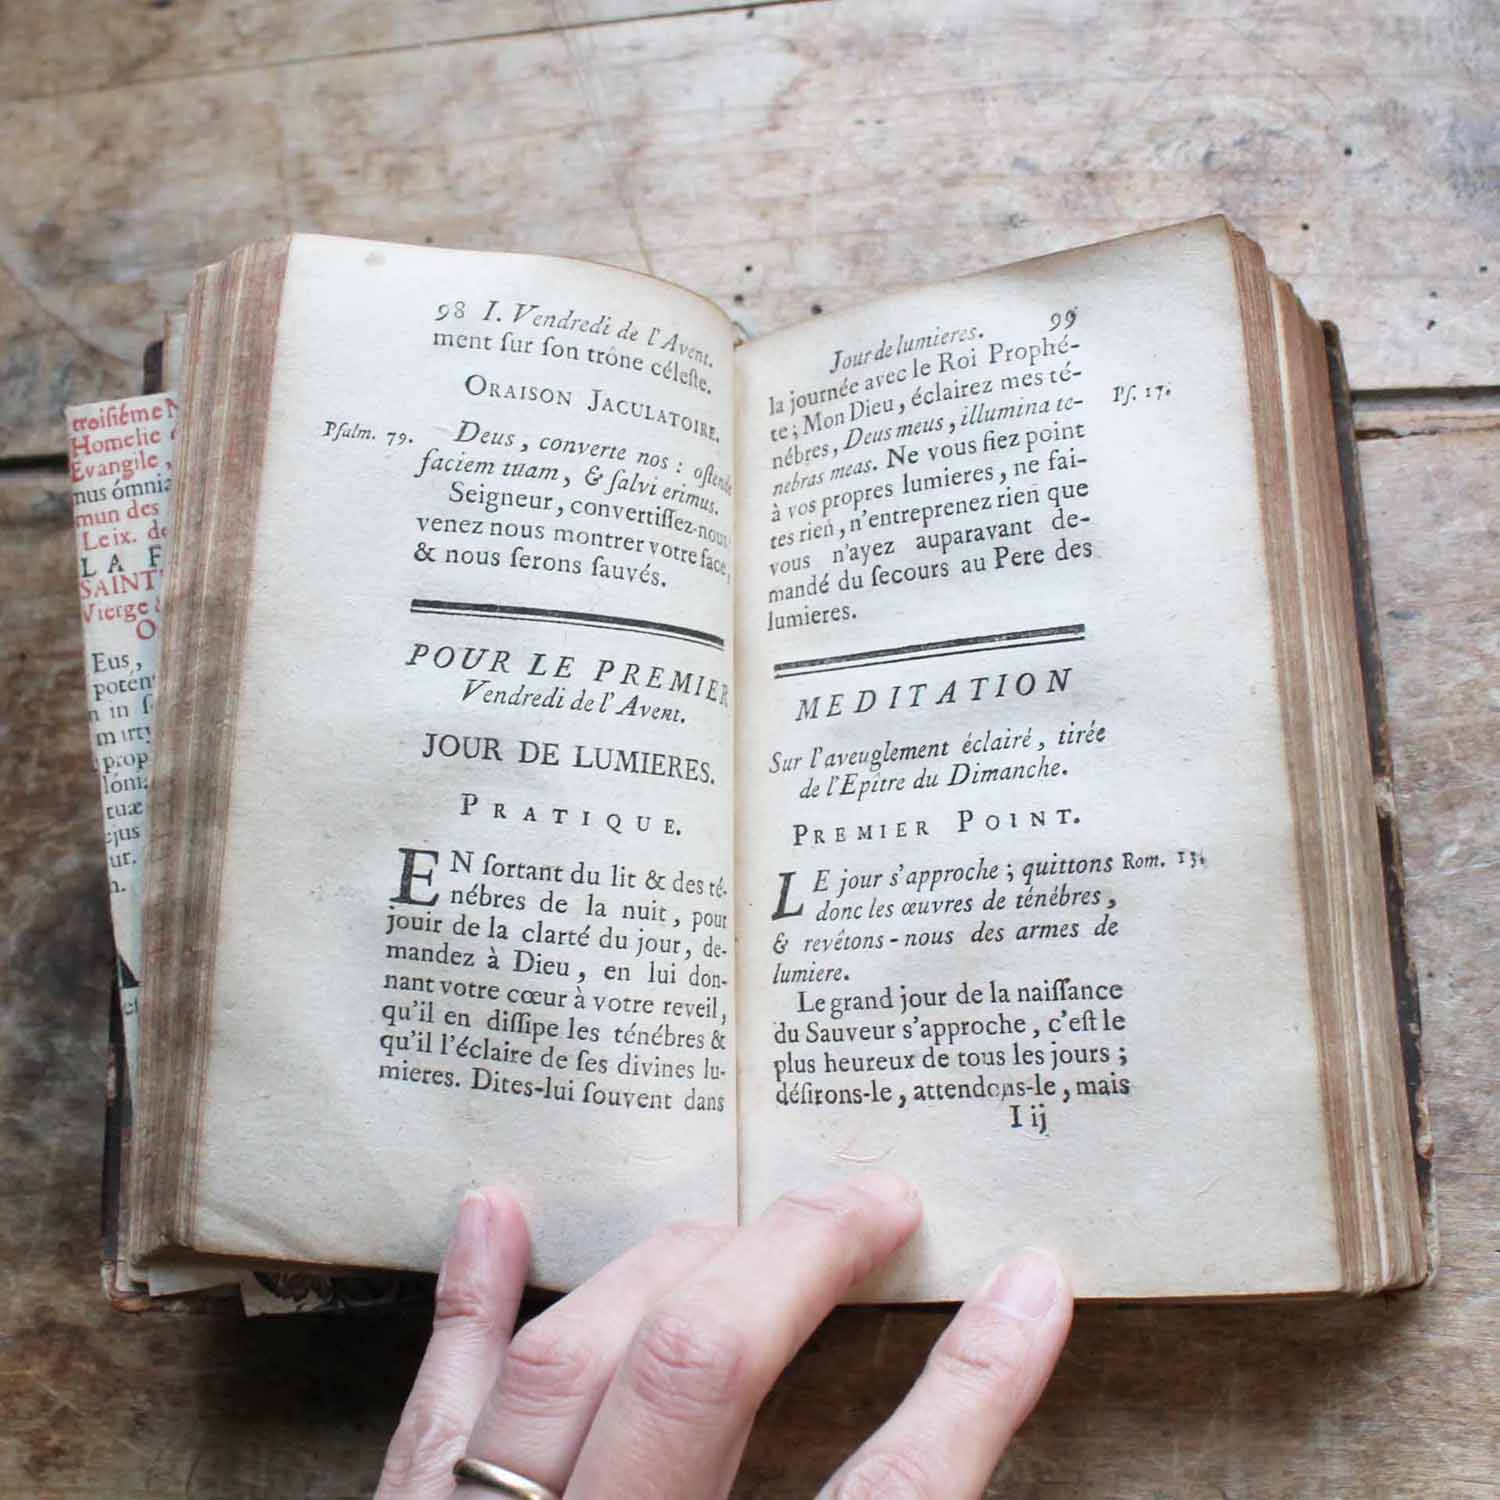 98 I. Vendredi de l'Avent.
ment ſur ſon trône céleſte.
ORAISON JACULATOIRE.
Pſalm. 79.
Deus, converte nos : oſtende
faciem tuam, & ſalvi erimus.
Seigneur, convertiſſez-nous
venez nous montrer votre face,
& nous ſerons ſauvés.
POUR LE PREMIER
Vendredi de l'Avent.
JOUR DE LUMIERES.
PRATIQUE.
EN ſortant du lit & des té-
nébres de la nuit, pour
jouir de la clarté du jour, de-
mandez à Dieu, en lui don-
nant votre cœur à votre reveil,
qu'il en diſſipe les ténébres &
qu'il l'éclaire de ſes divines lu-
mieres. Dites-lui ſouvent dans
Jour de lumieres. 99
la journée avec le Roi Prophé-
te ; Mon Dieu, éclairez mes té-
nébres, Deus meus, illumina te-
nebras meas. Ne vous fiez point
à vos propres lumieres, ne fai-
tes rien, n'entreprenez rien que
vous n'ayez auparavant de-
mandé du ſecours au Pere des
lumieres.
Pſ. 17.
MEDITATION
Sur l'aveuglement éclairé, tirée
de l'Epître du Dimanche.
PREMIER POINT.
LE jour s'approche ; quittons
donc les œuvres de ténébres,
& revêtons-nous des armes de
lumiere.
Rom. 13.
Le grand jour de la naiſſance
du Sauveur s'approche, c'eſt le
plus heureux de tous les jours ;
déſirons-le, attendons-le, mais
I ij
troiſiéme
Homelie
Evangile,
nus ómnia
mun des
Leix. de
LA
SAINT
Vierge
Eus,
potén
in
marty
prop
lóni
tuæ
ejus
ur.